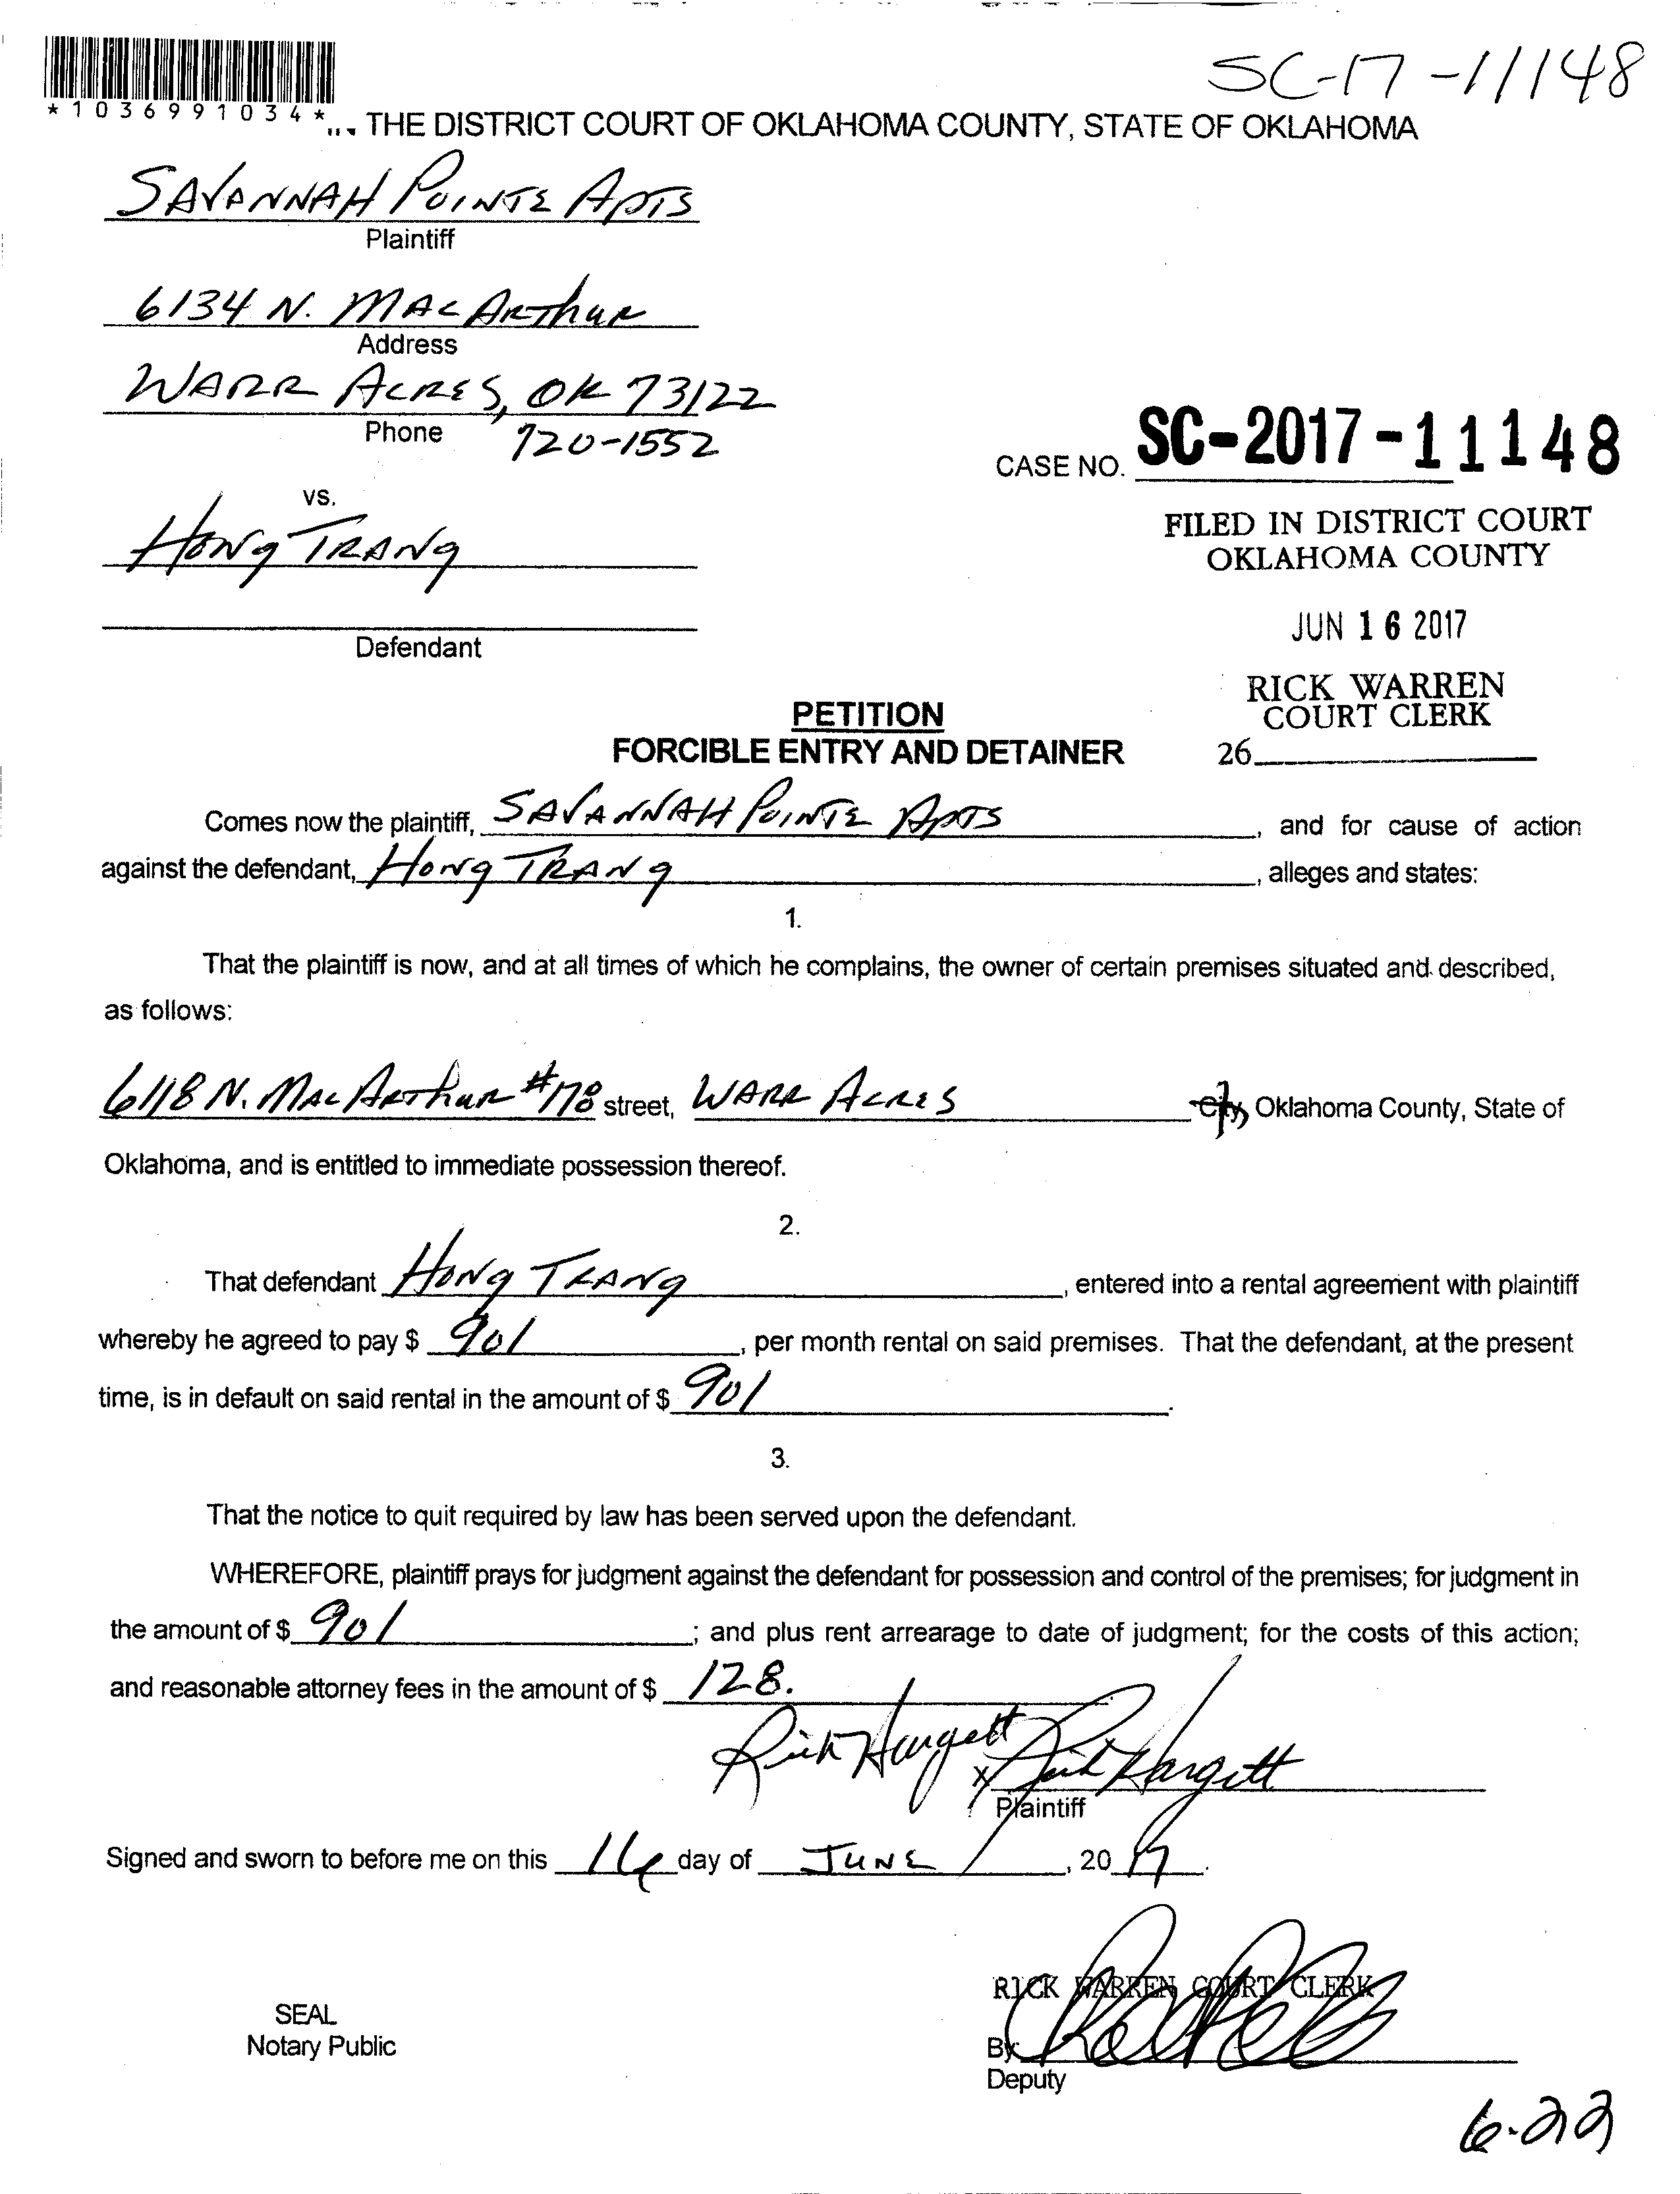 SC-17-11148
*1036991034*
THE DISTRICT COURT OF OKLAHOMA COUNTY, STATE OF OKLAHOMA
SAVANNAH POINTE APTS
Plaintiff
6134 N. MACARTHUR
Address
WARR ACRES, OK 73122
Phone 720-1552
CASE NO. SC-2017-11148
vs.
HONG TRANG
Defendant
FILED IN DISTRICT COURT
OKLAHOMA COUNTY
JUN 16 2017
RICK WARREN
COURT CLERK
26
PETITION
FORCIBLE ENTRY AND DETAINER
Comes now the plaintiff, SAVANNAH POINTE APTS, and for cause of action
against the defendant, HONG TRANG, alleges and states:
1.
That the plaintiff is now, and at all times of which he complains, the owner of certain premises situated and described,
as follows:
6118 N. MACARTHUR #178 street, WARR ACRES City, Oklahoma County, State of
Oklahoma, and is entitled to immediate possession thereof.
2.
That defendant HONG TRANG, entered into a rental agreement with plaintiff
whereby he agreed to pay $ 901, per month rental on said premises. That the defendant, at the present
time, is in default on said rental in the amount of $ 901.
3.
That the notice to quit required by law has been served upon the defendant.
WHEREFORE, plaintiff prays for judgment against the defendant for possession and control of the premises; for judgment in
the amount of $ 901; and plus rent arrearage to date of judgment; for the costs of this action;
and reasonable attorney fees in the amount of $ 128.
Rick Hargett x Rick Hargett
Plaintiff
Signed and sworn to before me on this 16 day of JUNE, 2017.
RICK WARREN COURT CLERK
SEAL
Notary Public
By
Deputy
6-22